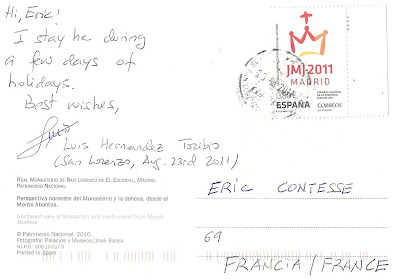 Hi, Eric!
I stay he during
a few days of
holidays.
Best wishes,
Luis Hernandez Toribio
(San Lorenzo, Aug. 23rd 2011)
JMJ-2011
MADRID
ESPAÑA
CORREOS
REAL MONASTERIO DE SAN LORENZO DE EL ESCORIAL, MADRID.
PATRIMONIO NACIONAL.
Perspectiva noroeste del Monasterio y la dehesa, desde el
Monte Abantos.
Northeast view of Monastery and pastureland from Mount
Abantos.
© Patrimonio Nacional, 2010.
Fotografía: Palacios y Museos/José Barea.
Printed in Spain
ERIC CONTESSE
69
FRANCIA/FRANCE